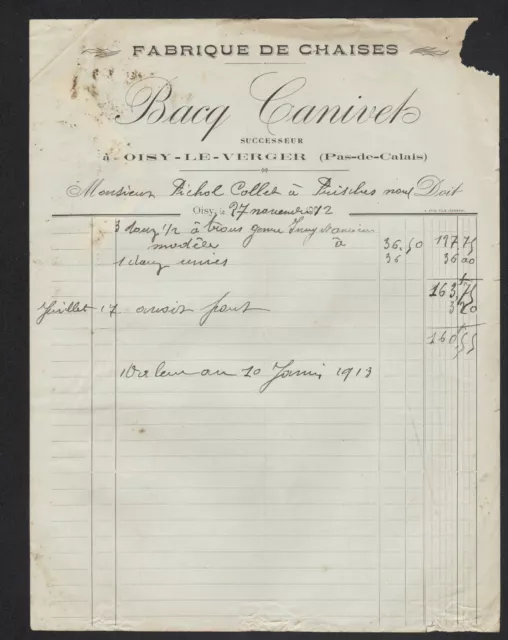 FABRIQUE DE CHAISES
Bacq Canivet
SUCCESSEUR
à OISY-LE-VERGER (Pas-de-Calais)
Monsieur Pichol Collet à Prisches nord Doit
Oisy, le 27 novembre 12
3 douz 1/2 à trous genre
modèle à 36.50 127 75
1 douz unies 36 36 00
163,75
Juillet 17 avoir port 3 20
160 55
Valeur au 10 Janvier 1913